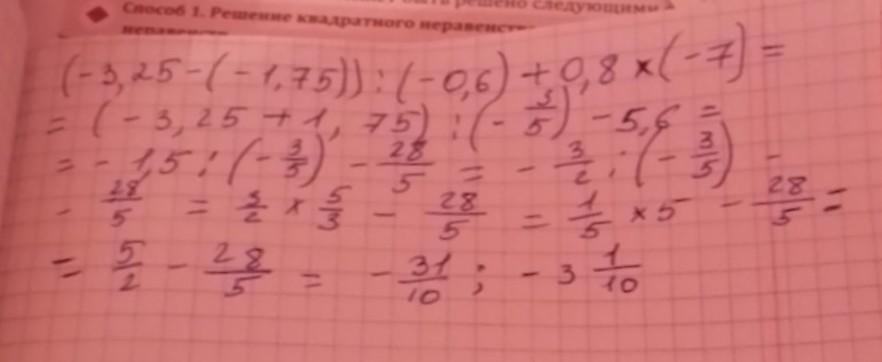 быть решено следующими
Способ 1. Решение квадратного неравенств
неравенств
(-3,25-(-1,75)):(-0,6)+0,8×(-7)=
=(-3,25+1,75):(-3/5)-5,6=
=-1,5:(-3/5)-28/5=-3/2:(-3/5)-
-28/5=3/2×5/3-28/5=1/5×5-28/5=
=5/2-28/5=-31/10;-3 1/10